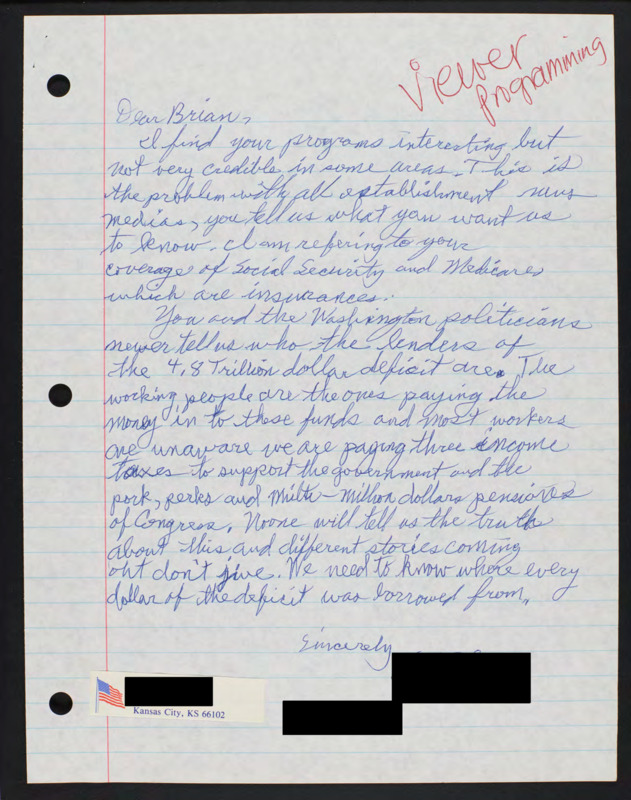 Viewer
programming
Dear Brian,
I find your programs interesting but
not very credible in some areas. This is
the problem with all establishment runs
medias, you tell us what you want us
to know. I am refering to your
coverage of Social Security and Medicare
which are insurances.
You and the Washington politicians
never tell us who the lenders of
the 4,8 Trillion dollar deficit are. The
working people are the ones paying the
money in to these funds and most workers
are unaware we are paying three income
taxes to support the government and the
pork, perks and Multi-million dollars pensions
of Congress. Noone will tell us the truth
about this and different stories coming
out don't jive. We need to know where every
dollar of the deficit was borrowed from.
Sincerely
Kansas City, KS 66102